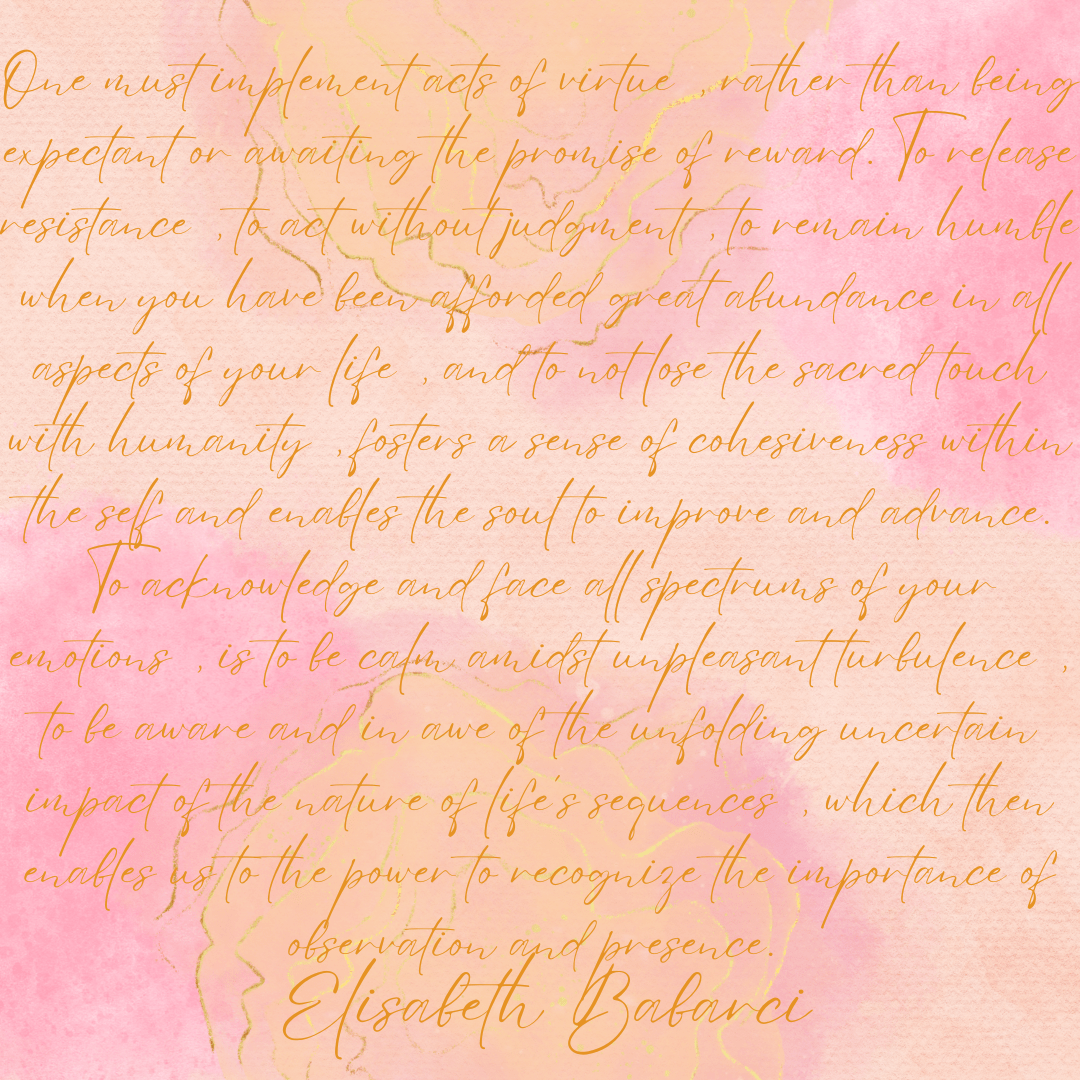 One must implement acts of virtue , rather than being
expectant or awaiting the promise of reward. To release
resistance , to act without judgment , to remain humble
when you have been afforded great abundance in all
aspects of your life , and to not lose the sacred touch
with humanity , fosters a sense of cohesiveness within
the self and enables the soul to improve and advance.
To acknowledge and face all spectrums of your
emotions , is to be calm amidst unpleasant turbulence ,
to be aware and in awe of the unfolding uncertain
impact of the nature of life's sequences , which then
enables us to the power to recognize the importance of
observation and presence.
Elisabeth Babarci